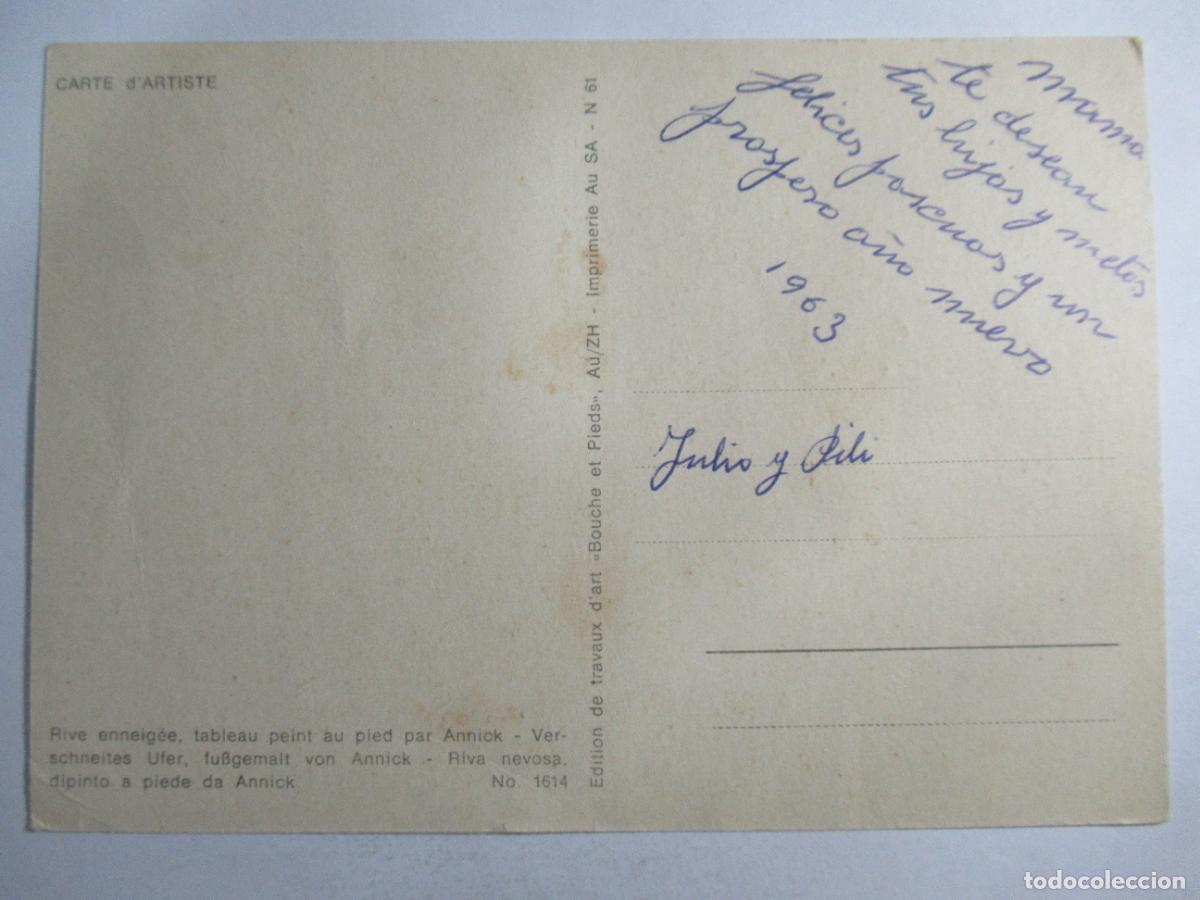 CARTE d'ARTISTE
Rive enneigée, tableau peint au pied par Annick - Ver-
schneites Ufer, fußgemalt von Annick - Riva nevosa,
dipinto a piede da Annick No. 1614
Edition de travaux d'art «Bouche et Pieds», Au/ZH - Imprimerie Au SA - N 61
Mama
te desean
tus hijos y nietos
felices pascuas y un
prospero año nuevo
1963
Julio y Pili
todocoleccion